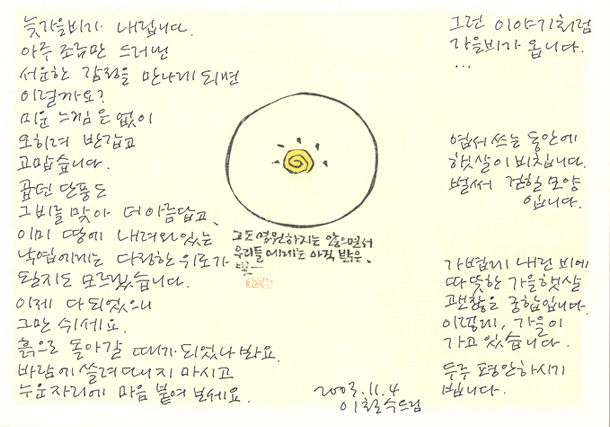 늦가을비가 내립니다.
아주 조금만 드러낸
서운한 감정을 만나게 되면
이럴까요?
미운 느낌은 없이
오히려 반갑고
고맙습니다.
곱던 단풍도
그 비를 맞아 더 아름답고,
이미 땅에 내려와 있는
낙엽에게는 다정한 위로가
될지도 모르겠습니다.
이제 다 되었으니
그만 쉬세요.
흙으로 돌아갈 때가 되었나 봐요.
바람에 쓸려 다니지 마시고
누운 자리에 마음 붙여 보세요.
그도 영원하지는 않으면서
우리들에게는 아직 밝은,
빛—
그런 이야기처럼
가을비가 옵니다.
...
엽서 쓰는 동안에
햇살이 비칩니다.
벌써 갠 모양
입니다.
가볍게 내린 비에
따뜻한 가을햇살
괜찮은 궁합입니다.
이렇게, 가을이
가고 있습니다.
두루 평안하시기
빕니다.
2003.11.4
이철수드림